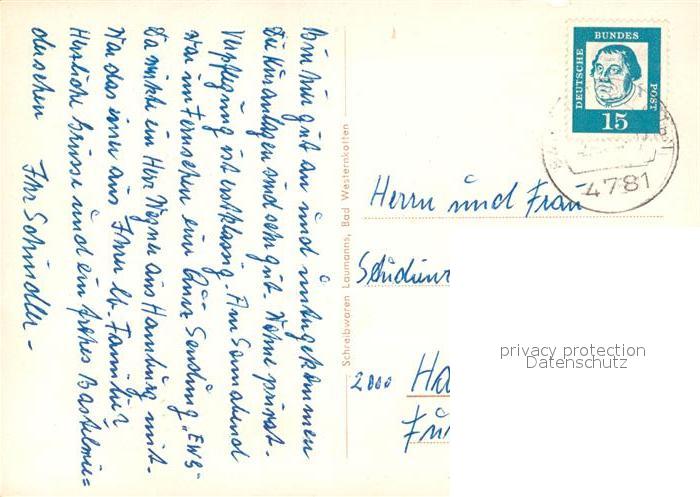 Bin hier gut an und untergekommen
Die Kuranlagen sind sehr gut. Wohne privat.
Verpflegung ist erstklassig. Am Sonnabend
war im Fernsehen eine Quiz Sendung "EWG"
Da wirkte ein Herr Wegner aus Hamburg mit.
War das einer aus Ihrer lb. Familie?
Herzliche Grüsse und ein frohes
duschen Ihr Schindler -
Schreibwaren Laumanns, Bad Westernkotten
DEUTSCHE
BUNDES
POST
15
4781
Herrn und Frau
2000 Ha
privacy protection
Datenschutz